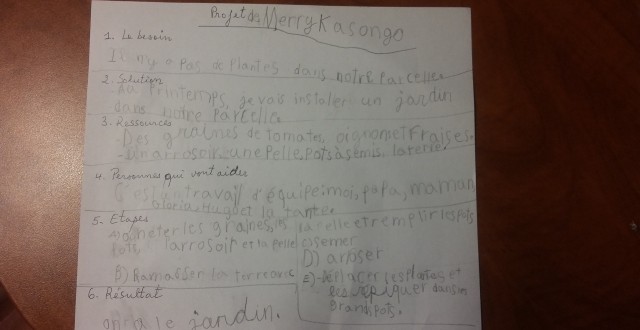 Projet de Merry Kasongo
1. Le besoin
Il n'y a pas de plantes dans notre parcelle
2. Solution
Au printemps, je vais installer un jardin
dans notre parcelle
3. Ressources
- Des graines de tomates, oignon et fraises.
- Un arrosoir, une pelle, pots à semis, la terre.
4. Personnes qui vont aider
C'est un travail d'équipe: moi, papa, maman,
la tante.
5. Etapes
A) acheter les graines, les
pots, l'arrosoir et la pelle
B) Ramasser la terre
la pelle et remplir les pots
C) semer
D) arroser
E) - Déplacer les plantes et
les repiquer dans
grands pots.
6. Résultat
on a le jardin.